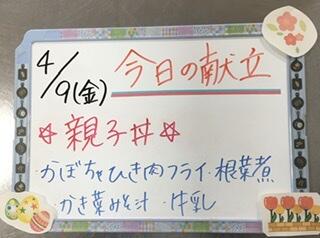 4/9(金) 今日の献立
☆親子丼☆
・かぼちゃひき肉フライ・根菜煮
・かき菜みそ汁・牛乳